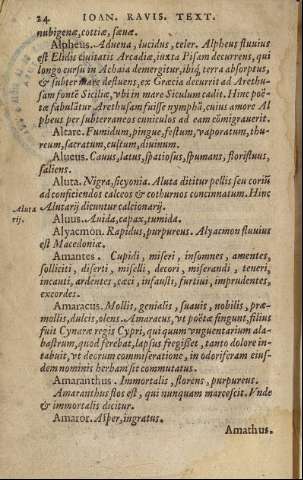 24 IOAN. RAVIS. TEXT.
nubigenæ, cottiæ, sæuæ.
Alpheus. Aduena, lucidus, celer. Alpheus fluuius
est Elidis ciuitatis Arcadiæ, iuxta Pisam decurrens, qui
longo cursu in Achaia demergitur, ibiq; terra absorptus,
& subter mare defluens, ex Græcia decurrit ad Arethu-
sam fontē Siciliæ, vbi in mare Siculum cadit. Hinc poë-
tæ fabulātur Arethusam fuisse nymphā, cuius amore Al
pheus per subterraneos cuniculos ad eam cōmigrauerit.
Altare. Fumidum, pingue, festum, vaporatum, thu-
reum, sacratum, cultum, diuinum.
Alueus. Cauus, latus, spatiosus, spumans, floristuus,
saliens.
Aluta. Nigra, sicyonia. Aluta dicitur pellis seu coriū
ad conficiendos calceos & cothurnos concinnatum. Hinc
Aluta
rij.
Alutarij dicuntur calcionarij.
Aluus. Auida, capax, tumida.
Alyacmon. Rapidus, purpureus. Alyacmon fluuius
est Macedoniæ.
Amantes. Cupidi, miseri, insomnes, amentes,
solliciti, diserti, miselli, decori, miserandi, teneri,
incauti, ardentes, cæci, infausti, furtiui, imprudentes,
excordes.
Amaracus. Mollis, genialis, suauis, nobilis, præ-
mollis, dulcis, olens. Amaracus, vt poëtæ fingunt, filius
fuit Cynaræ regis Cypri, qui quum vnguentarium ala-
bastrum, quod ferebat, lapsus fregisset, tanto dolore in-
tabuit, vt deorum commiseratione, in odoriferam eius-
dem nominis herbam sit commutatus.
Amaranthus. Immortalis, florens, purpureus.
Amaranthus flos est, qui nunquam marcescit. Vnde
& immortalis dicitur.
Amaror. Asper, ingratus.
Amathus.